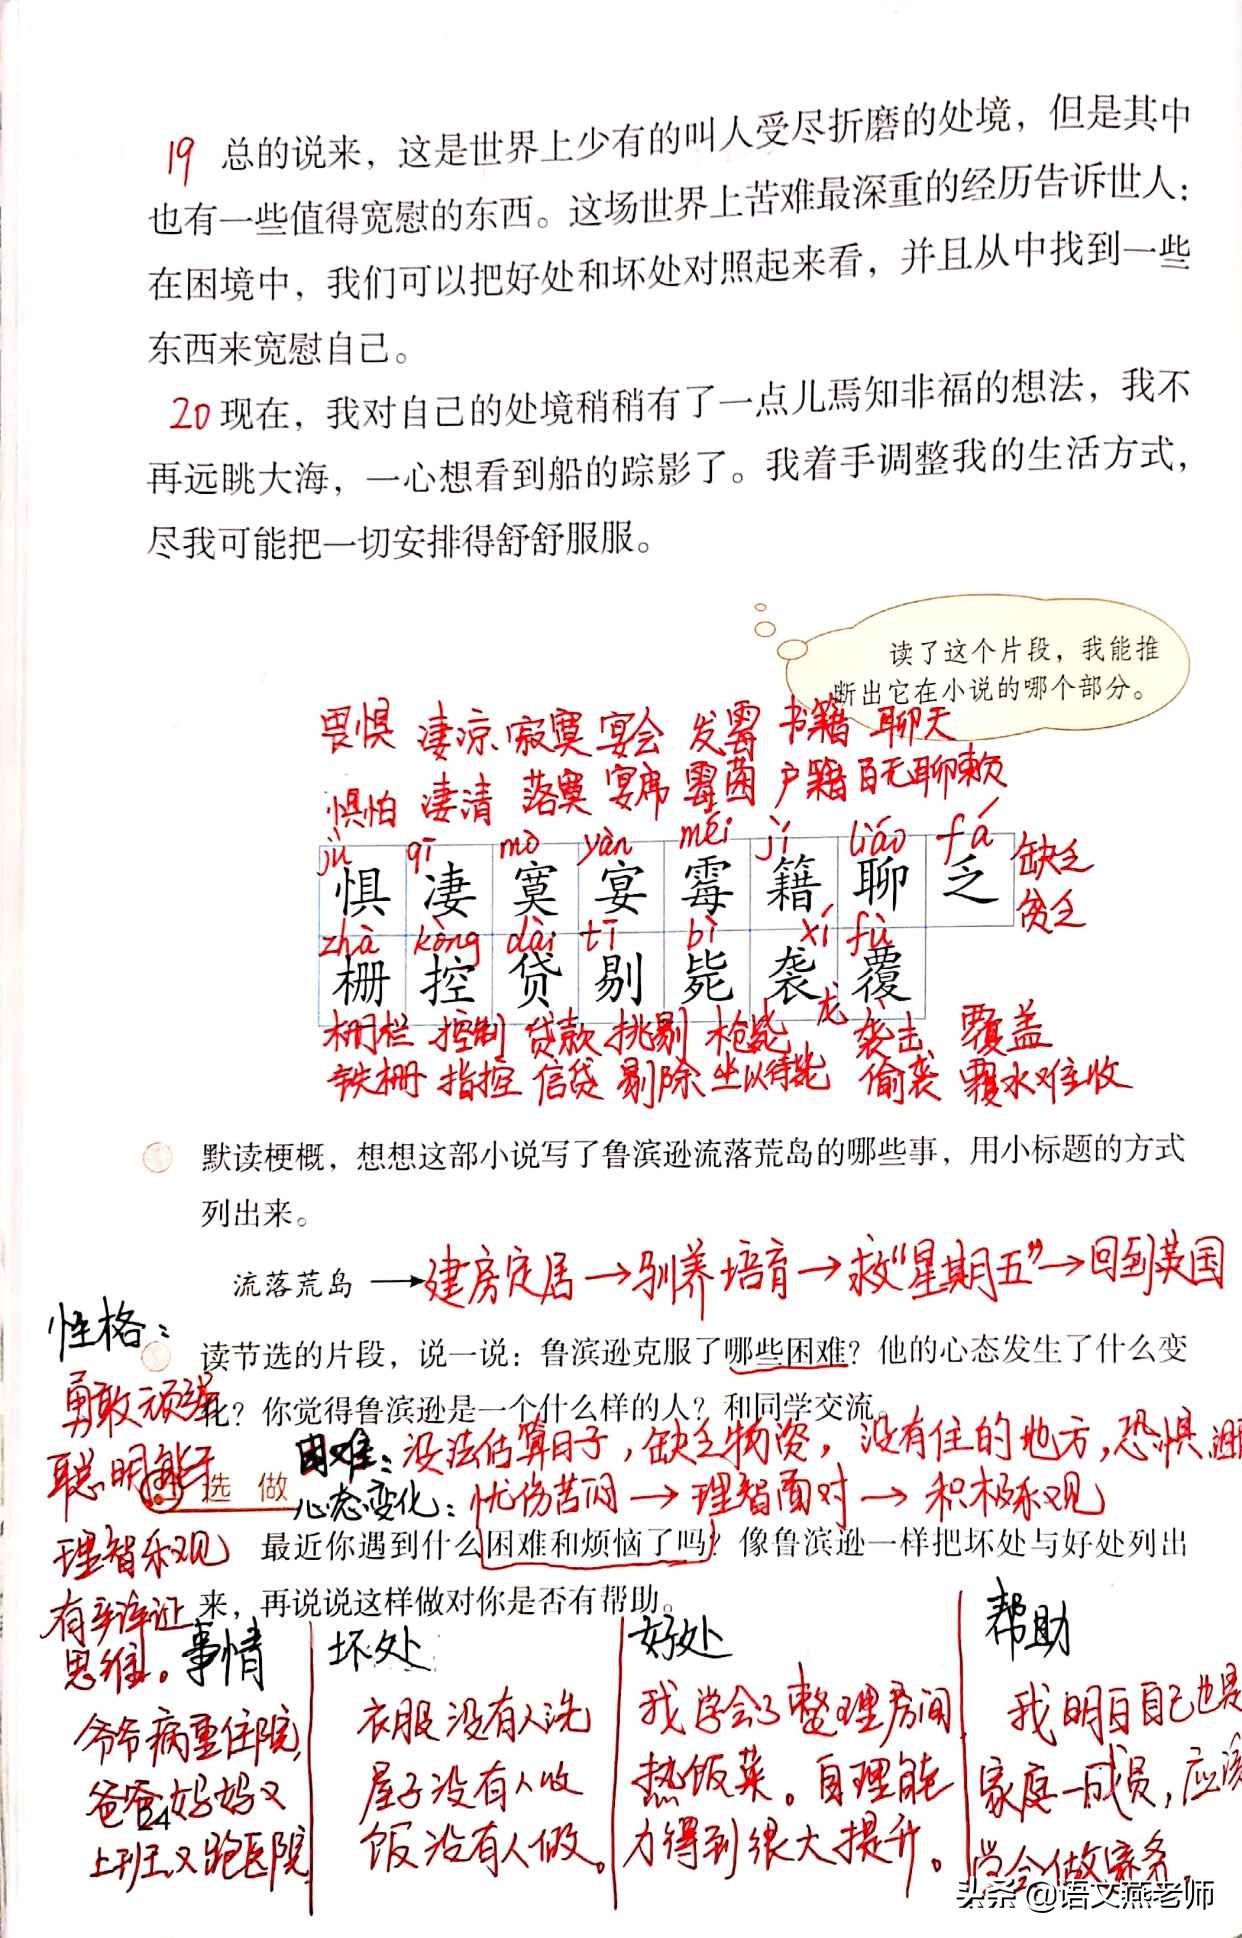 19 总的说来，这是世界上少有的叫人受尽折磨的处境，但是其中
也有一些值得宽慰的东西。这场世界上苦难最深重的经历告诉世人：
在困境中，我们可以把好处和坏处对照起来看，并且从中找到一些
东西来宽慰自己。
20 现在，我对自己的处境稍稍有了一点儿焉知非福的想法，我不
再远眺大海，一心想看到船的踪影了。我着手调整我的生活方式，
尽我可能把一切安排得舒舒服服。
读了这个片段，我能推
断出它在小说的哪个部分。
畏惧 凄凉 寂寞 宴会 发霉 书籍 聊天
惧怕 凄清 落寞 宴席 霉菌 户籍 百无聊赖
jù qī mò yàn méi jí liáo fá
惧 凄 寞 宴 霉 籍 聊 乏 缺乏
贫乏
zhà kòng dài tī bì xí fù
栅 控 贷 剔 毙 袭 覆
龙
栅栏 控制 贷款 挑剔 枪毙 袭击 覆盖
铁栅 指控 信贷 剔除 坐以待毙 偷袭 覆水难收
默读梗概，想想这部小说写了鲁滨逊流落荒岛的哪些事，用小标题的方式
列出来。
流落荒岛 → 建房定居 → 驯养培育 → 救“星期五” → 回到英国
性格：
读节选的片段，说一说：鲁滨逊克服了哪些困难？他的心态发生了什么变
化？你觉得鲁滨逊是一个什么样的人？和同学交流。
勇敢顽强
聪明能干
理智乐观
有辩证
思维。
困难：没法估算日子，缺乏物资，没有住的地方，恐惧
选做
心态变化：忧伤苦闷 → 理智面对 → 积极乐观
最近你遇到什么困难和烦恼了吗？像鲁滨逊一样把坏处与好处列出
来，再说说这样做对你是否有帮助。
事情 坏处 好处 帮助
爷爷病重住院，
爸爸妈妈又
上班又跑医院
衣服没有人洗
屋子没有人收
饭没有人做。
我学会了整理房间
热饭菜。自理能
力得到很大提升。
我明白自己也是
家庭一成员，应该
学会做家务。
24
头条 @语文燕老师